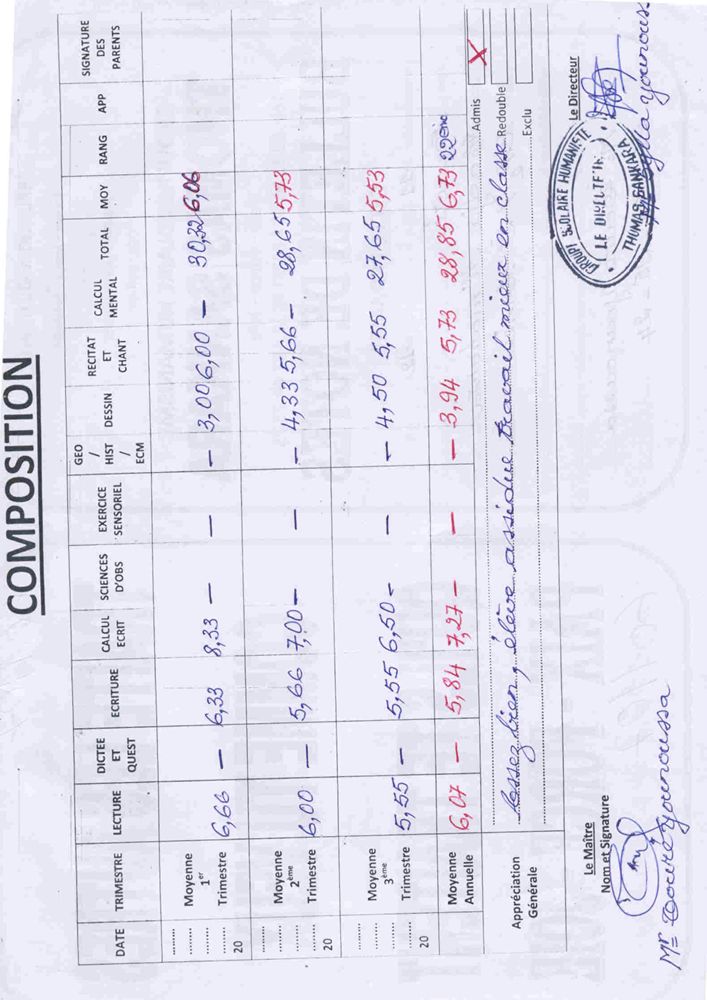 COMPOSITION
DATE TRIMESTRE LECTURE DICTEE ET QUEST ECRITURE CALCUL ECRIT SCIENCES D'OBS EXERCICE SENSORIEL GEO / HIST / ECM DESSIN RECITAT ET CHANT CALCUL MENTAL TOTAL MOY RANG APP SIGNATURE DES PARENTS
......... ......... ........ 20 Moyenne 1er Trimestre 6,66 — 6,33 8,33 — — — 3,00 6,00 — 30,32 6,06
......... ......... ........ 20 Moyenne 2ème Trimestre 6,00 — 5,66 7,00 — — — 4,33 5,66 — 28,65 5,73
......... ......... ........ 20 Moyenne 3ème Trimestre 5,55 — 5,55 6,50 — — — 4,50 5,55 27,65 5,53
Moyenne Annuelle 6,07 — 5,84 7,27 — — — 3,94 5,73 28,85 6,73 22ème
Appréciation Générale
Assez bien, élève assidue travail mieux en classe
Admis X
Redouble
Exclu
Le Maître
Nom et Signature
Mr Younoussa
Le Directeur
GROUPE SCOLAIRE HUMANISTE
LE DIRECTEUR
THOMAS SANKARA